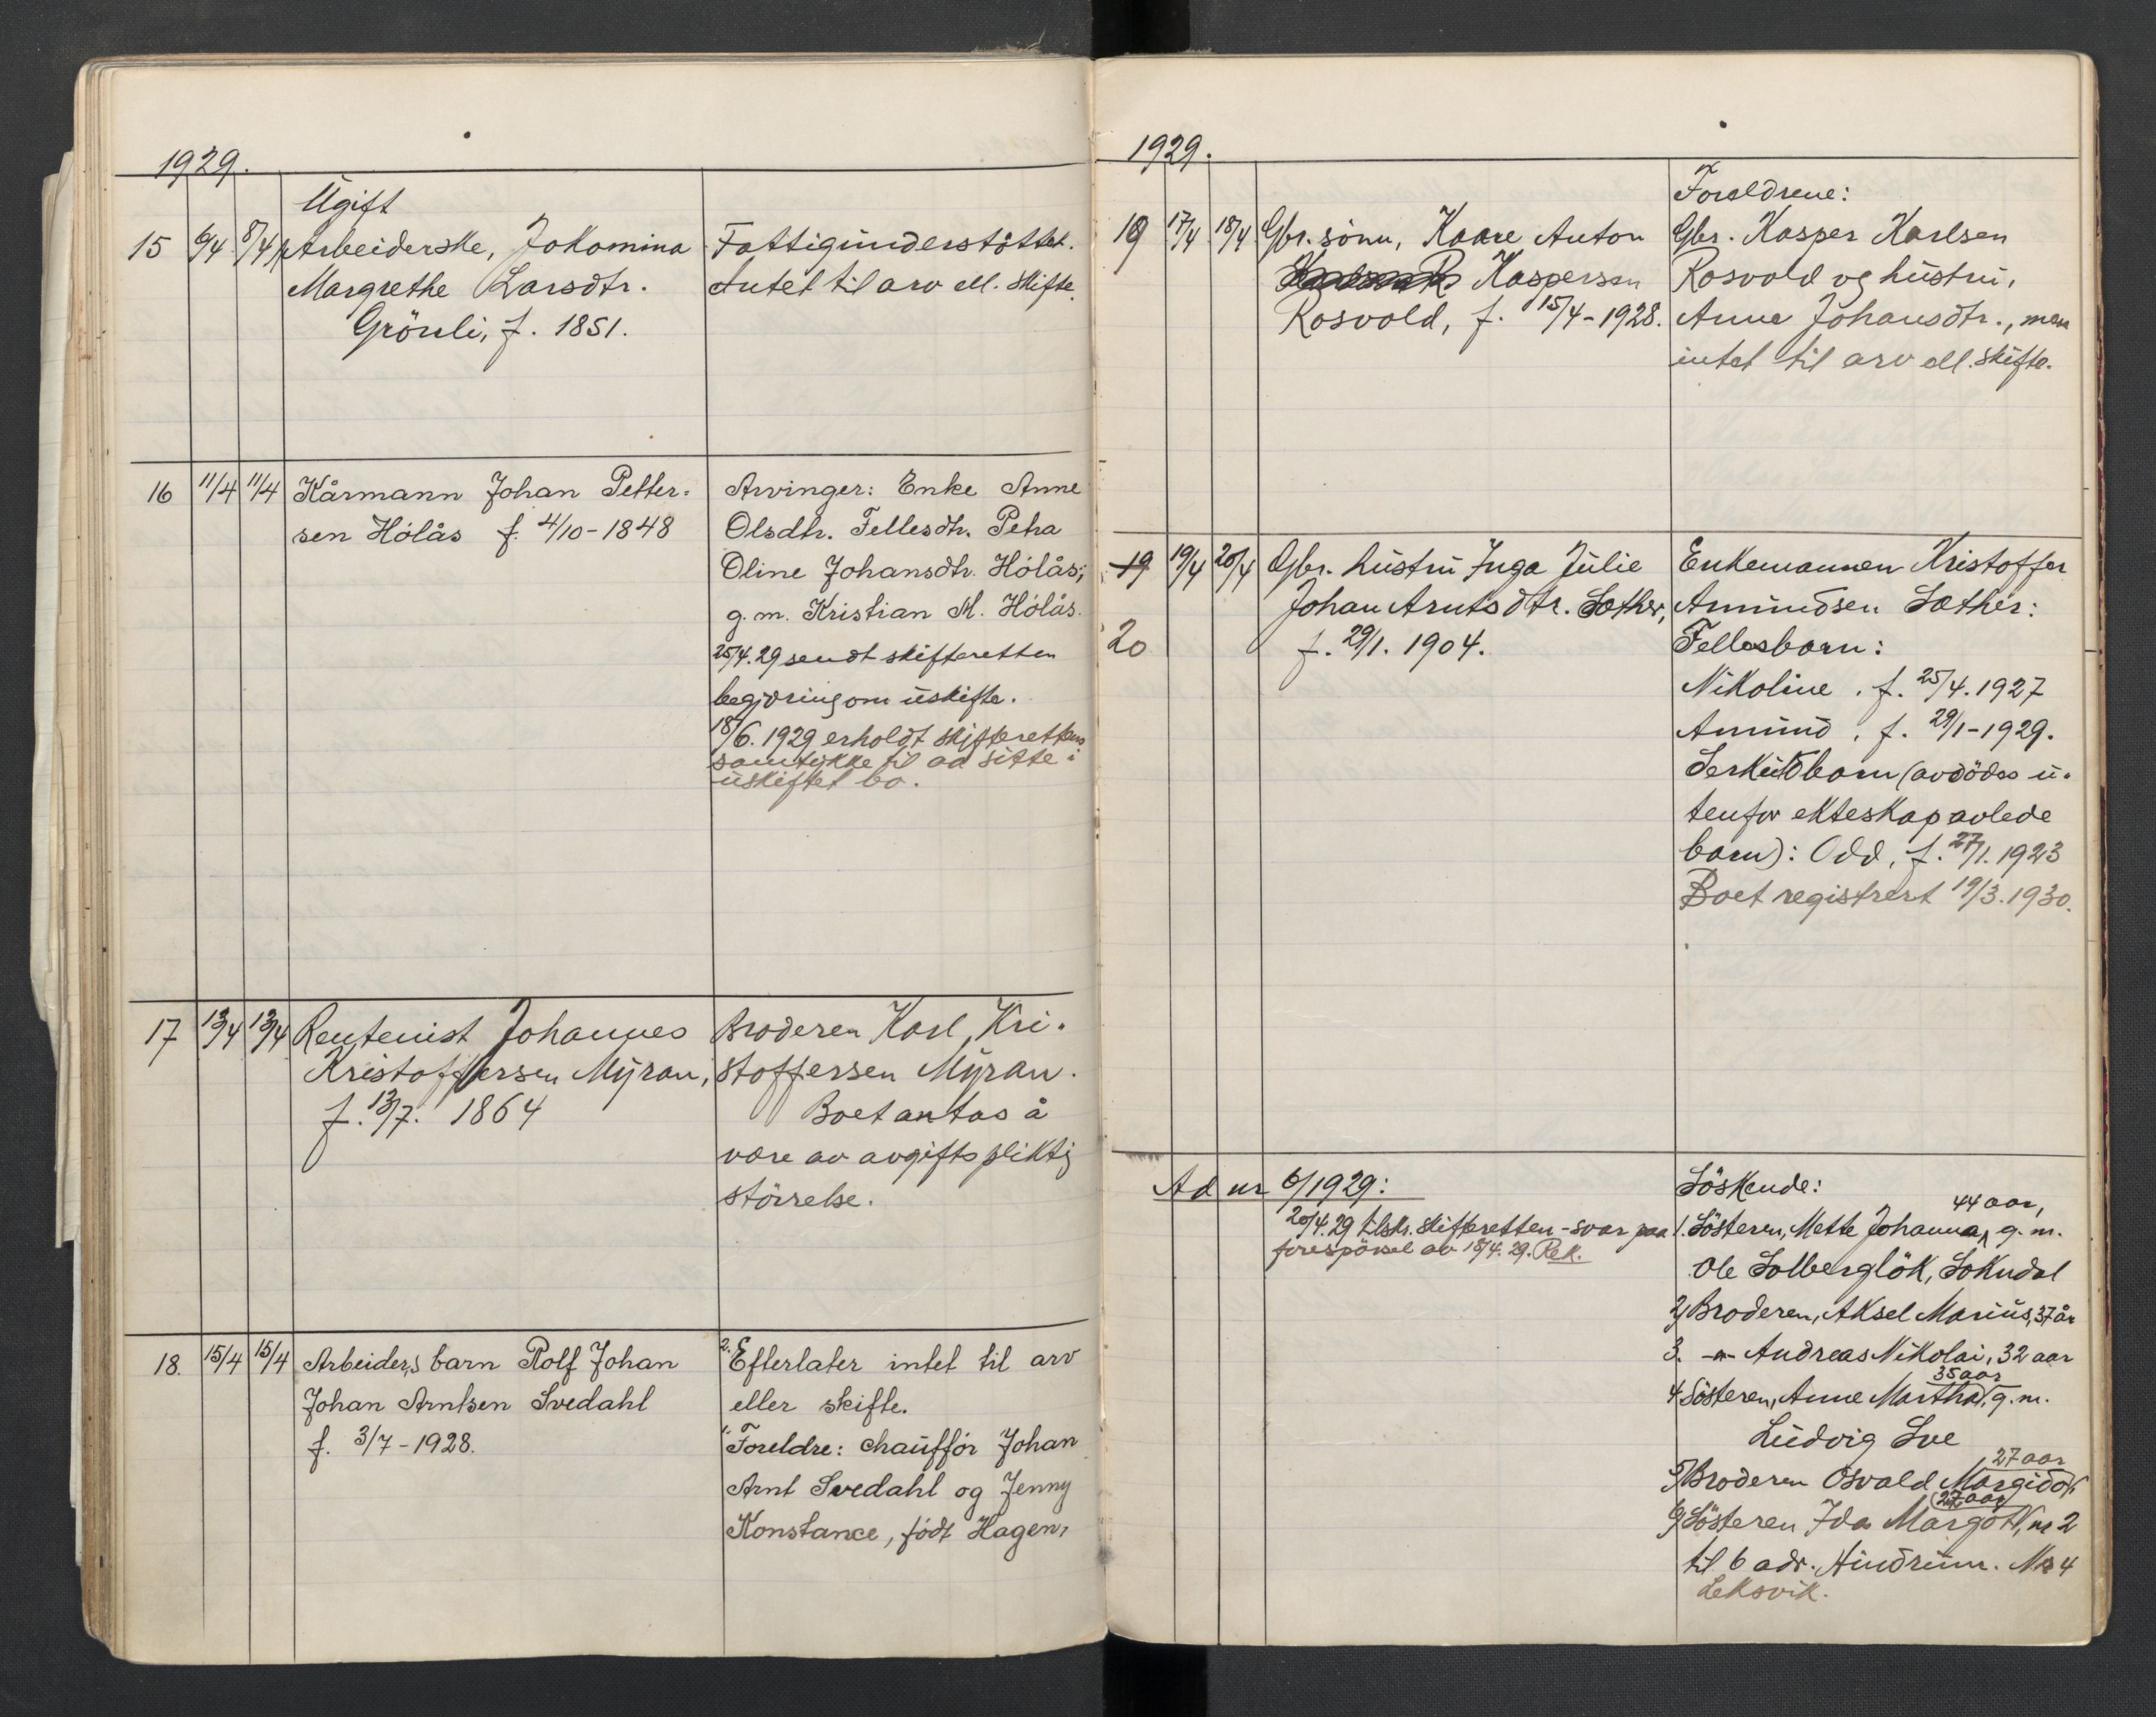 1929.
Ugift
15 6/4 8/4 Arbeiderske, Jokomina
Margrethe Larsdtr.
Grönli, f. 1851.
Fattigunderstöttet.
Intet til arv ell. skifte.
16 11/4 11/4 Kårmann Johan Petter-
sen Hólås f. 4/10-1848
Arvinger: Enke Anne
Olsdtr. Fellesdtr. Petra
Oline Johansdtr. Hólås;
g.m. Kristian M. Hólås.
25/4.29 sendt skifteretten
begjæring om uskifte.
18/6. 1929 erholdt skifterettens
samtykke til aa sitte i
uskiftet bo.
17 13/4 13/4 Rentenist Johannes
Kristoffersen Myran,
f. 13/7. 1864
Broderen Karl Kri-
stoffersen Myran.
Boet antas å
være av avgiftspliktig
störrelse.
18. 15/4 15/4 Arbeiders barn Rolf Johan
Johan Arntsen Svedahl
f. 3/7-1928.
2. Efterlater intet til arv
eller skifte.
1. Foreldre: chauffór Johan
Arnt Svedahl og Jenny
Konstance, fódt Hagen,
1929.
19 17/4 18/4 Gbr. sönn, Kaare Anton
Kaspersen
Rosvold, f. 15/4-1928.
Foreldrene:
Gbr. Kasper Karlsen
Rosvold og hustru,
Anne Johansdtr., men
intet til arv ell. skifte.
19 19/4 20/4 Gbr. hustru Inga Julie
Johan Arntsdtr. Sæther,
20 f. 29/1. 1904.
Enkemannen Kristoffer
Amundsen Sæther:
Fellesbarn:
Nikoline, f. 25/4. 1927
Amund, f. 29/1-1929.
Særkuldbarn (avdödes u-
tenfor ekteskap avlede
barn): Odd, f. 27/1. 1923
Boet registrert 19/3. 1930.
Ad nr 6/1929:
20/4.29 tilskr. skifteretten - svar paa
forespörsel av 18/4. 29. Rek.
Söskende:
44 aar,
1. Sösteren, Mette Johanna, g.m.
Ole Solberglök, Sokndal
2) Broderen, Aksel Marius, 37 år
3. -"- Andreas Nikolai, 32 aar
35 aar
4 Sösteren, Anne Martha, g.m.
Ludvig Sve
27 aar
5) Broderen Osvald Margido,
(22 aar)
6) Sösteren Ida Margot, nr 2
til 6 adr. Hindrum. Nr 4
Leksvik.